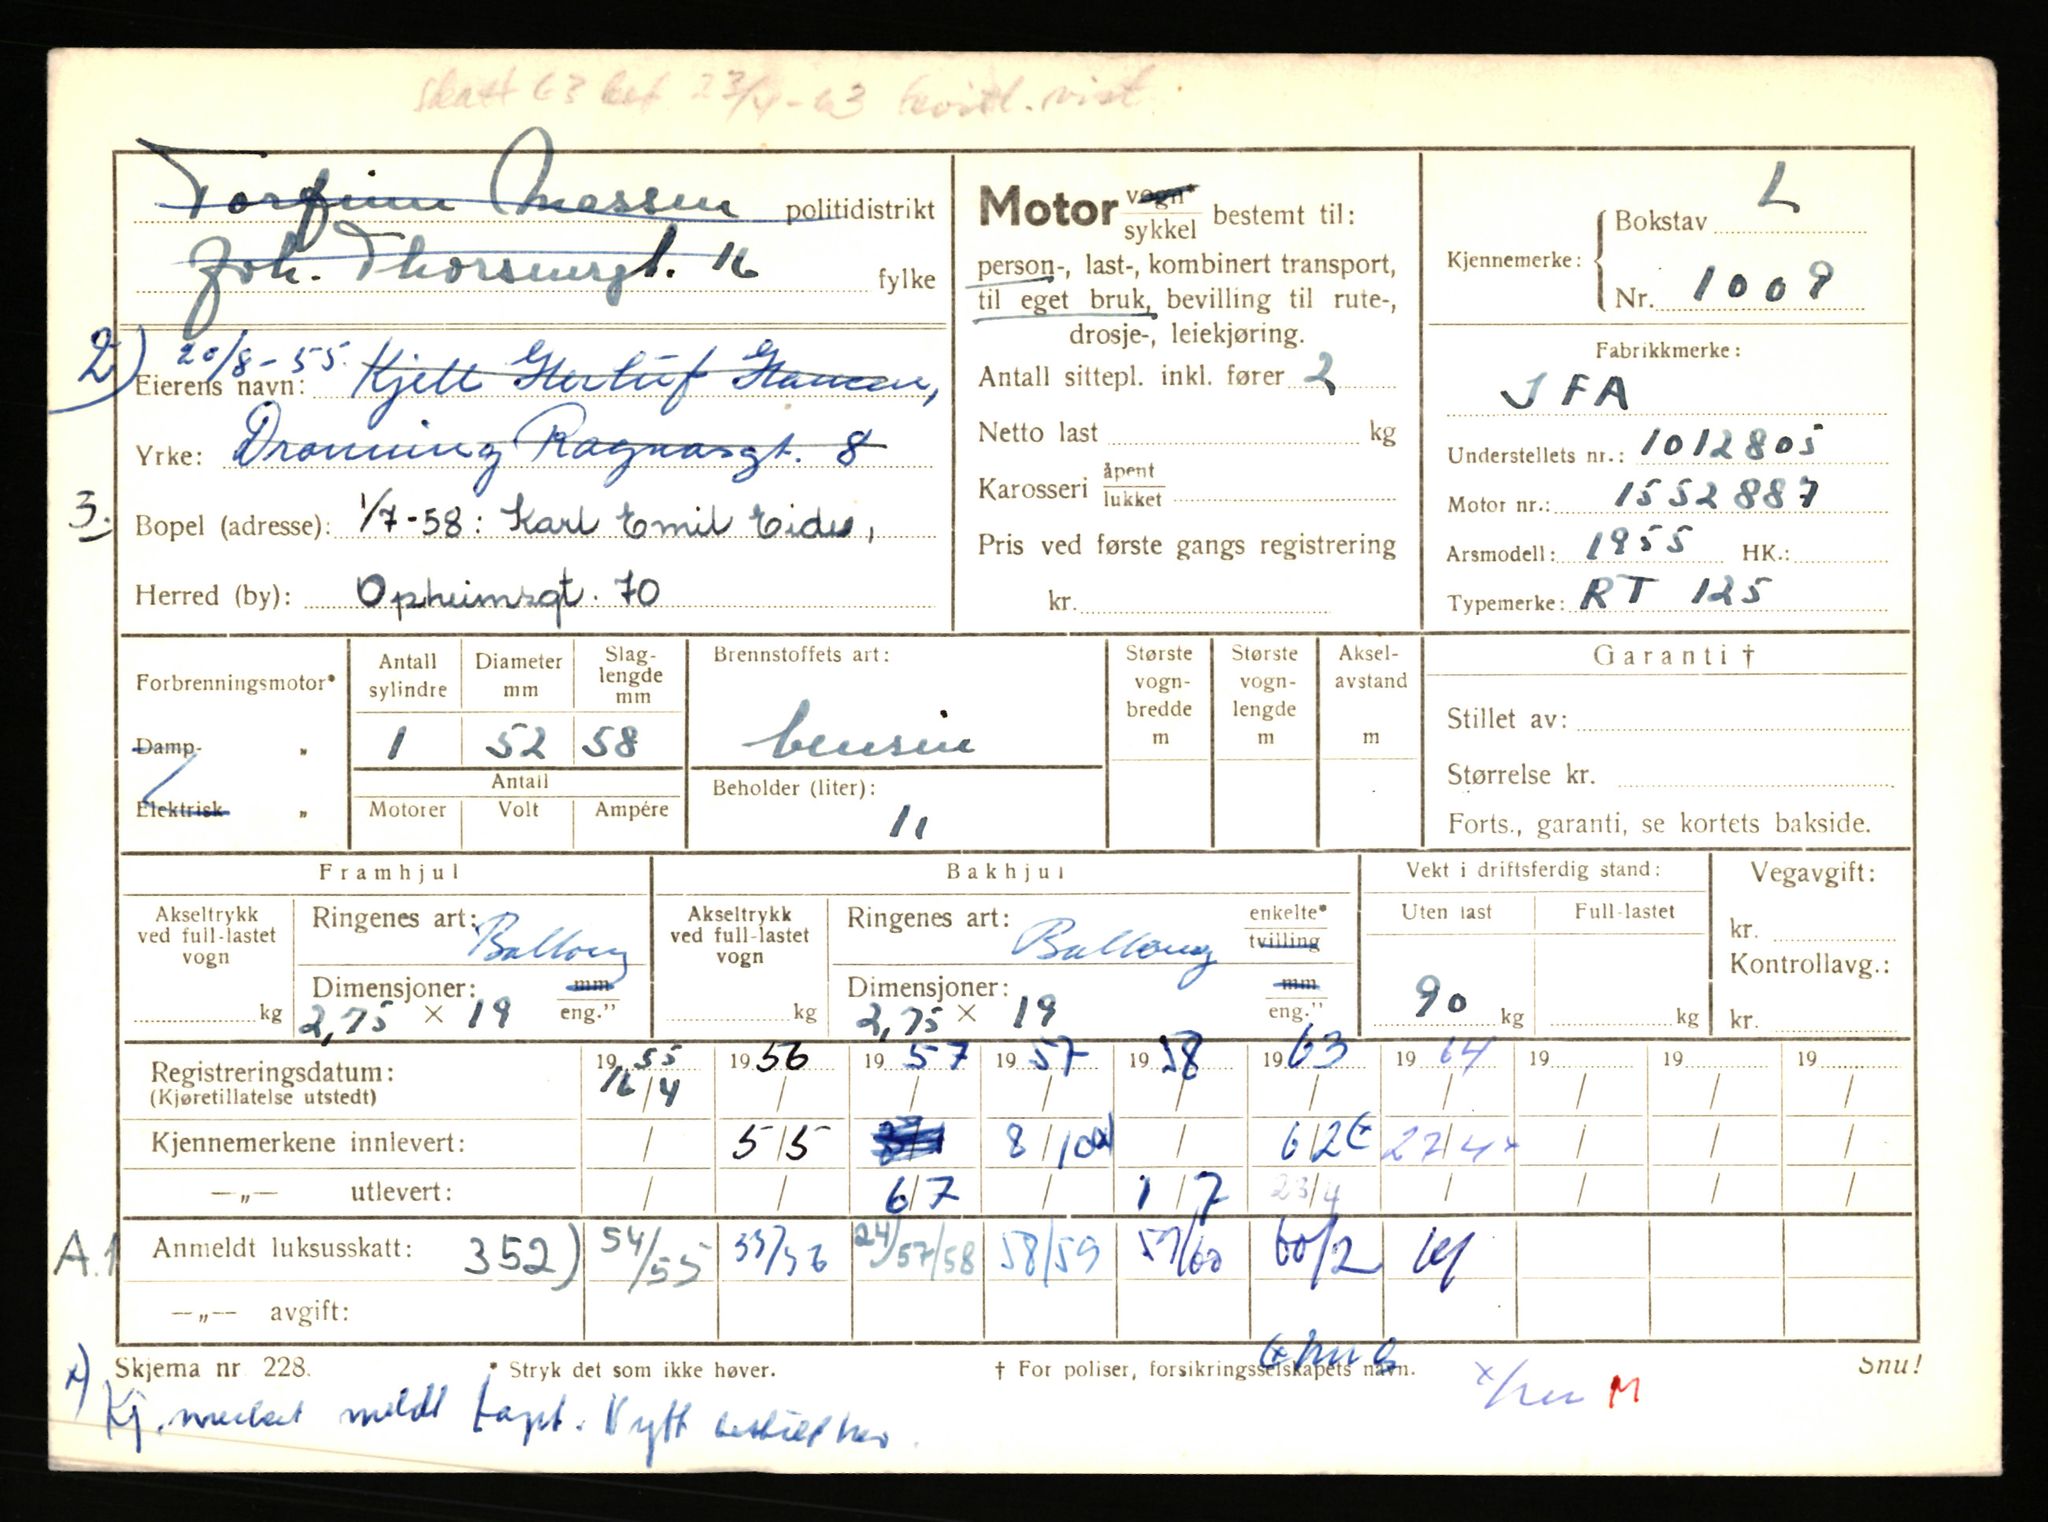 skatt 63 bet 23/4-63 kvitt. vist
Torfinn politidistrikt
Joh. Thorsensgt. 16 fylke
2) 20/8-55.
Eierens navn: Kjell Herluf Hansen,
Yrke: Dronning Ragnasgt. 8
3. Bopel (adresse): 1/7-58: Karl Emil Eide,
Herred (by): Opheimsgt. 70
Motor vogn* sykkel bestemt til:
person-, last-, kombinert transport,
til eget bruk, bevilling til rute-,
drosje-, leiekjøring.
Antall sittepl. inkl. fører 2
Netto last kg
Karosseri åpent lukket
Pris ved første gangs registrering
kr.
Kjennemerke: Bokstav L
Nr. 1009
Fabrikkmerke:
IFA
Understellets nr.: 1012805
Motor nr.: 1552887
Arsmodell: 1955 HK.:
Typemerke: RT 125
Forbrenningsmotor*
Damp- "
Elektrisk "
Antall sylindre Diameter mm Slaglengde mm
1 52 58
Antall
Motorer Volt Ampére
Brennstoffets art:
bensin
Beholder (liter):
11
Største vognbredde m
Største vognlengde m
Akselavstand m
Garanti †
Stillet av:
Størrelse kr.
Forts., garanti, se kortets bakside.
Framhjul
Akseltrykk ved full-lastet vogn kg
Ringenes art: Ballong
Dimensjoner: mm
2,75 × 19 eng."
Bakhjul
Akseltrykk ved full-lastet vogn kg
Ringenes art: Ballong enkelte* tvilling
Dimensjoner: mm
2,75 × 19 eng."
Vekt i driftsferdig stand:
Uten last Full-lastet
90 kg kg
Vegavgift:
kr.
Kontrollavg.:
kr.
Registreringsdatum: 1955 1956 1957 1957 1958 1963 1964 19 19 19
(Kjøretillatelse utstedt) 16/4 / / / / / / / / /
Kjennemerkene innlevert: / 5/5 8/10 / 6/2 27/4 x / / /
—„— utlevert: / / 6/7 / 1/7 23/4 / / / /
A.1 Anmeldt luksusskatt: 352) 54/55 55/56 24/57/58 58/59 59/60 60/2 64
—„— avgift:
Skjema nr. 228. * Stryk det som ikke høver. † For poliser, forsikringsselskapets navn. Snu!
x) Kj. merket meldt tapt. Nytt M